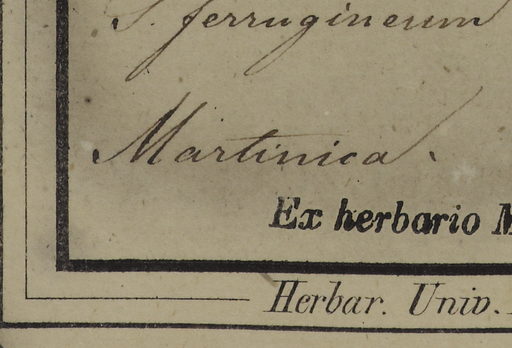 S. ferrugineum
Martinica.
Ex herbario M
Herbar. Univ.